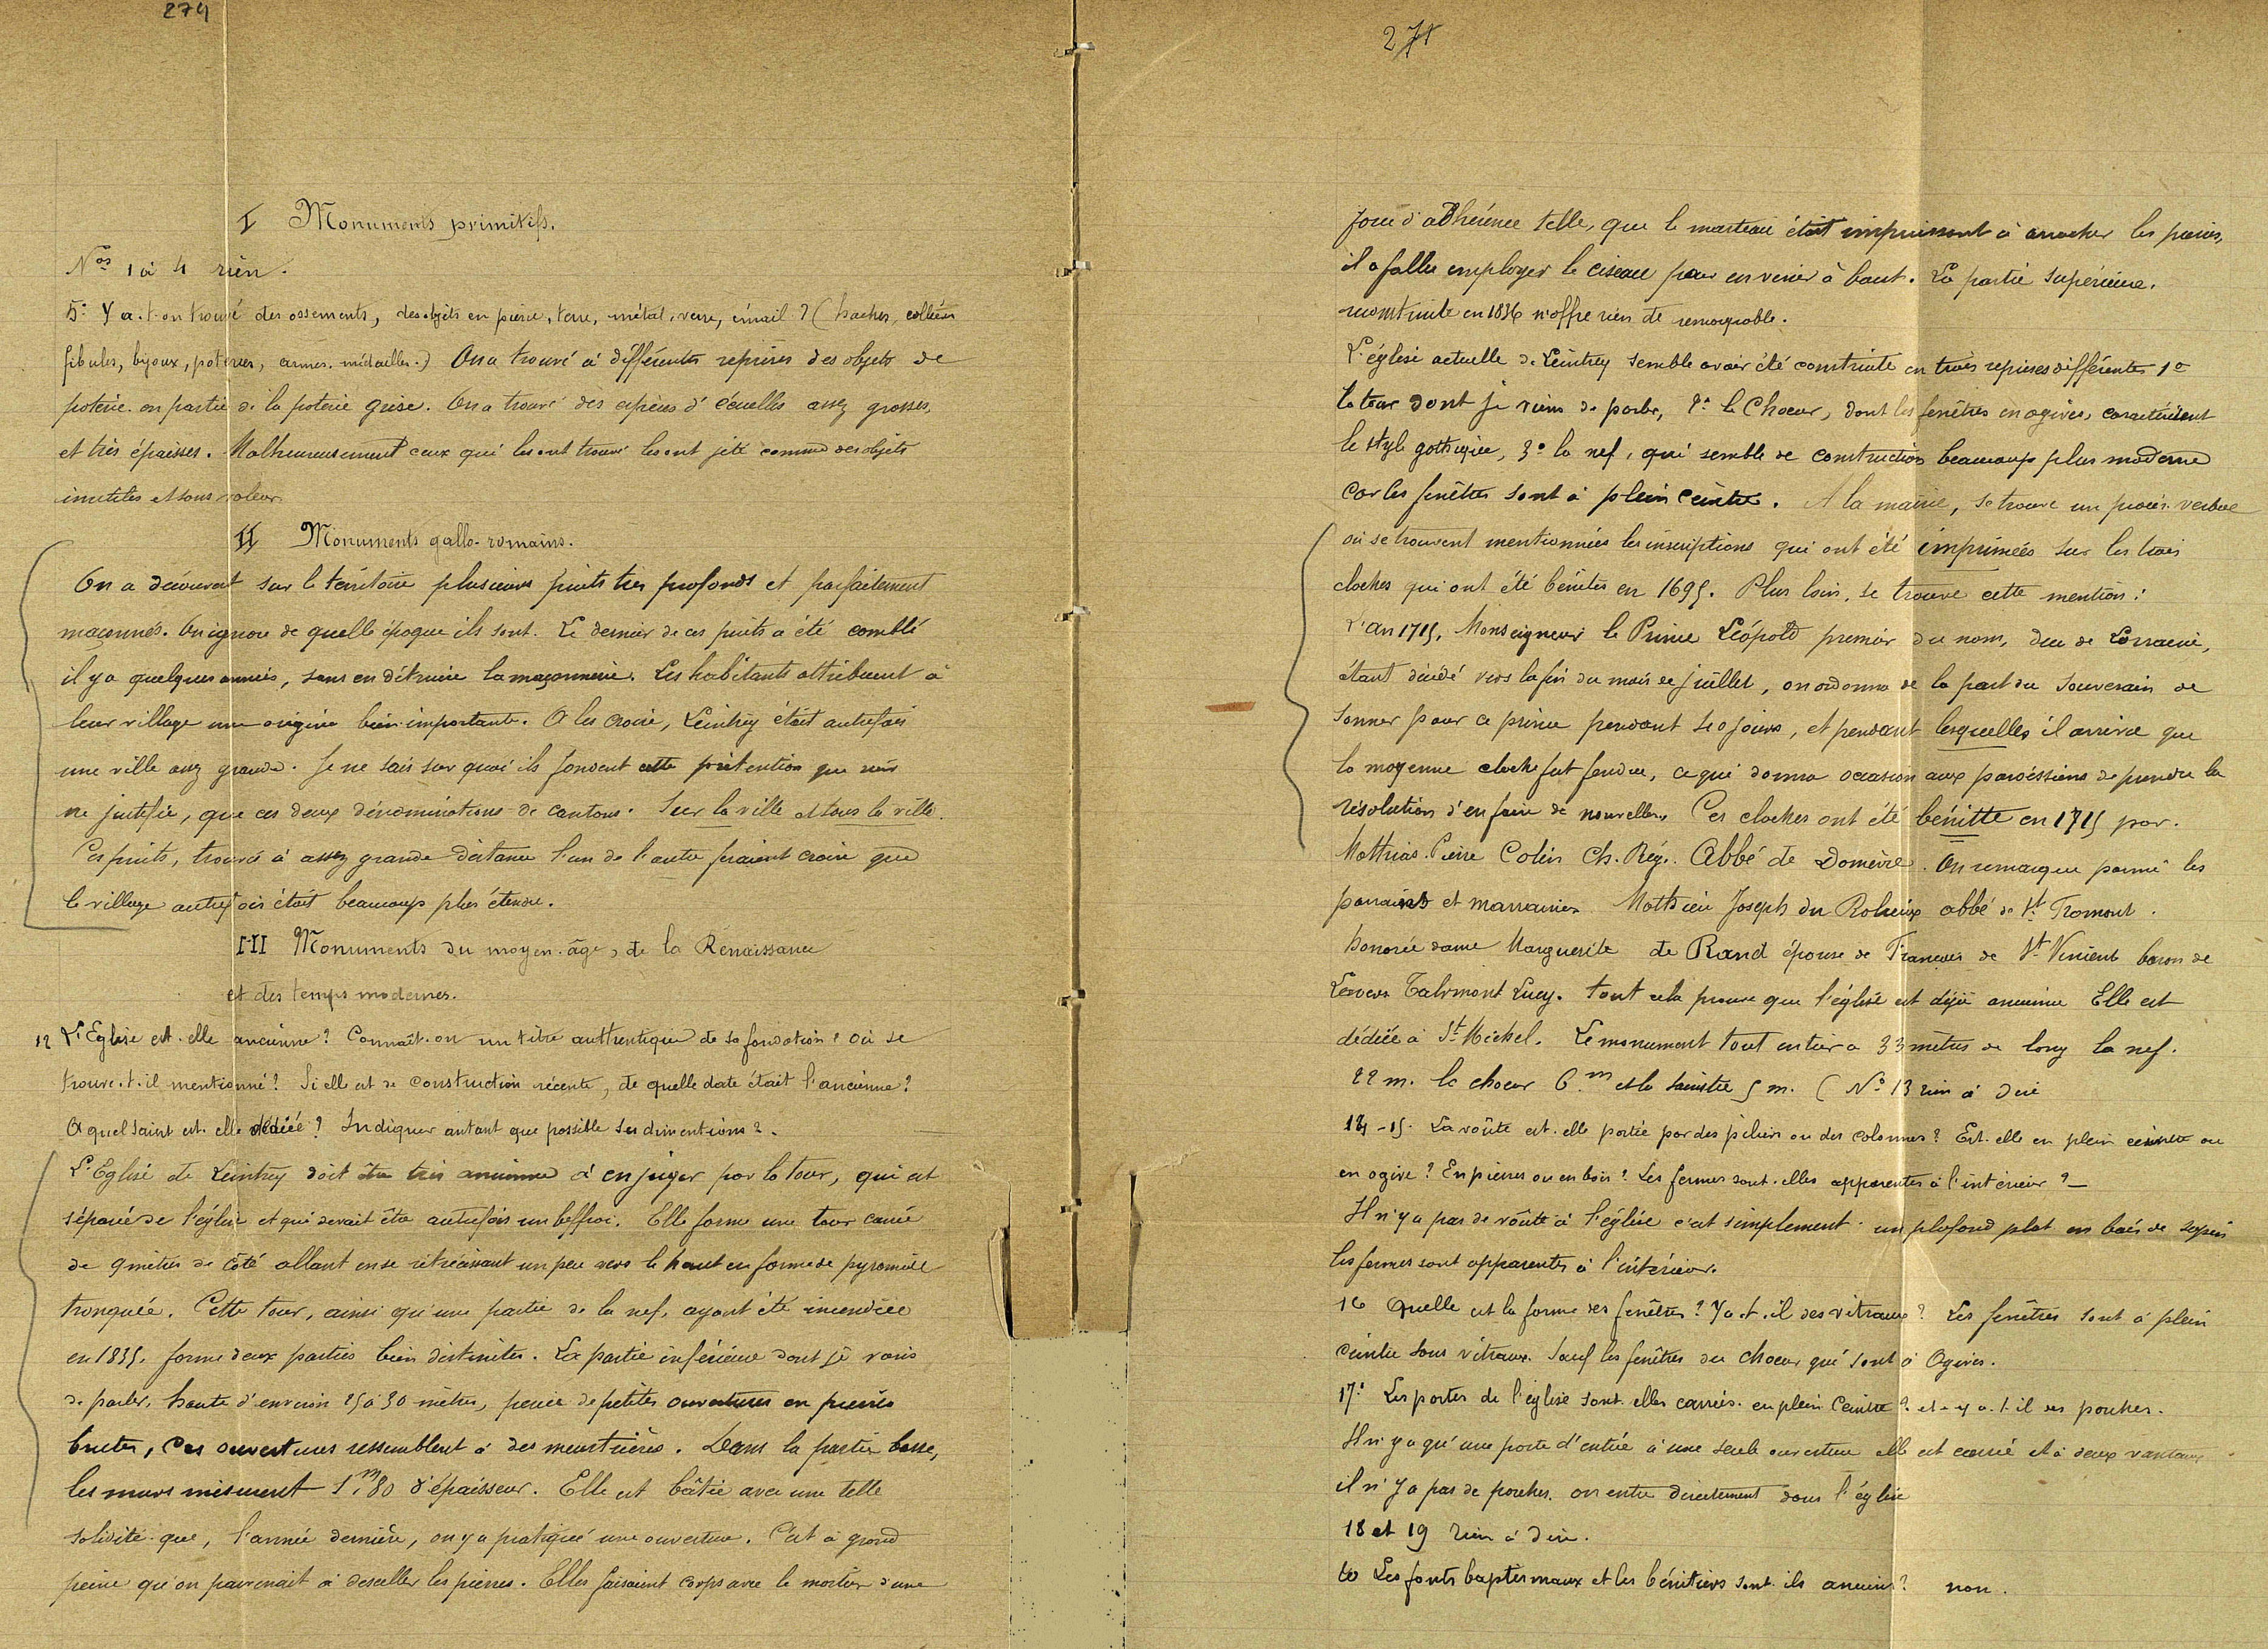 274
I Monuments primitifs.
Nos 1 à 4 rien.
5° Y a-t-on trouvé des ossements, des objets en pierre, terre, métal, verre, émail ? (haches, colliers
fibules, bijoux, poteries, armes, médailles.) On a trouvé à différentes reprises des objets de
poterie en partie de la poterie grise. On a trouvé des espèces d'écuelles assez grosses,
et très épaisses. Malheureusement ceux qui les ont trouvé les ont jeté comme des objets
inutiles et sans valeur.
II Monuments gallo-romains.
On a découvert sur le territoire plusieurs puits très profonds et parfaitement
maçonnés. On ignore de quelle époque ils sont. Le dernier de ces puits a été comblé
il y a quelques années, sans en détruire la maçonnerie. Les habitants attribuent à
leur village une origine bien importante. A les croire, Leintrey était autrefois
une ville assez grande. Je ne sais sur quoi ils fondent cette prétention que rien
ne justifie, que ces deux dénominations de cantons. Sur la ville et sous la ville.
Ces puits, trouvés à assez grande distance l'un de l'autre feraient croire que
le village autrefois était beaucoup plus étendu.
III Monuments du moyen-âge, de la Renaissance
et des temps modernes.
12 L'Eglise est-elle ancienne ? Connaît-on un titre authentique de sa fondation ? Où se
trouve-t-il mentionné ? Si elle est de construction récente, de quelle date était l'ancienne ?
A quel saint est-elle dédiée ? Indiquer autant que possible ses dimentions ? .
L'Eglise de Leintrey doit être très ancienne à en juger par la tour, qui est
séparée de l'église et qui devait être autrefois un beffroi. Elle forme une tour carrée
de 9 mètres de côté allant en se rétrécissant un peu vers le haut en forme de pyramide
tronquée. Cette tour, ainsi qu'une partie de la nef, ayant été incendiée
en 1835, forme deux parties bien distinctes. La partie inférieure dont je viens
de parler, haute d'environ 25 à 30 mètres, percée de petites ouvertures en pierres
brutes, ces ouvertures ressemblent à des meurtrières. Dans la partie basse,
les murs mesurent 1m,80 d'épaisseur. Elle est bâtie avec une telle
solidité que, l'année dernière, on y a pratiqué une ouverture. C'est à grand
peine qu'on parvenait à desceller les pierres. Elles faisaient corps avec le mortier d'une
271
force d'adhérence telle, que le marteau était impuissant à arracher les pierres,
il a fallu employer le ciseau pour en venir à bout. La partie supérieure.
reconstruite en 1836 n'offre rien de remarquable.
L'église actuelle de Leintrey semble avoir été construite en trois reprises différentes 1°
la tour dont je viens de parler, 2° le Choeur, dont les fenêtres en ogives, caractérisent
le style gothique, 3° la nef, qui semble de construction beaucoup plus moderne
car les fenêtres sont à plein ceintre. A la mairie, se trouve un procès-verbal
où se trouvent mentionnées les inscriptions qui ont été imprimées sur les trois
cloches qui ont été bénites en 1695. Plus loin, se trouve cette mention :
L'an 1715, Monseigneur le Prince Léopold premier du nom, duc de Lorraine,
étant décédé vers la fin du mois de juillet, on ordonna de la part du Souverain de
sonner pour ce prince pendant 40 jours, et pendant lesquelles il arriva que
la moyenne cloche fut fendue, ce qui donna occasion aux paroissiens de prendre la
résolution d'en faire de nouvelles. Ces cloches ont été bénitte en 1715 par.
Mathias-Pierre Colin Ch. Rég. Abbé de Domèvre. On remarque parmi les
parrains et marraines Mathieu Joseph du abbé de St
honorée dame Marguerite de Rand épouse de François de St Vincent baron de
Talimont Lucy. Tout cela prouve que l'église est déjà ancienne Elle est
dédiée à St Michel. Le monument tout entier a 33 mètres de long la nef.
22 m. le choeur 6m et la sacristie 5 m. (No 13 rien à dire
14-15. La voûte est-elle portée par des piliers ou des colonnes ? Est-elle en plein ceintre ou
en ogive ? En pierres ou en bois ? Les fermes sont-elles apparentes à l'intérieur ? _
Il n'y a pas de voûte à l'église c'est simplement un plafond plat en bois de sapin
les fermes sont apparentes à l'intérieur.
16 Quelle est la forme des fenêtres ? Y a-t-il des vitraux ? Les fenêtres sont à plein
ceintre sans vitraux. Sauf les fenêtres du choeur qui sont à Ogives.
17° Les portes de l'église sont-elles carrées. en plein ceintre ? et y a-t-il des porches.
Il n'y a qu'une porte d'entrée à une seule ouverture elle est carrée et à deux vantaux
il n'y a pas de porches. on entre directement dans l'église
18 et 19 rien à dire.
20 Les fonts baptismaux et les bénitiers sont-ils anciens ? non.